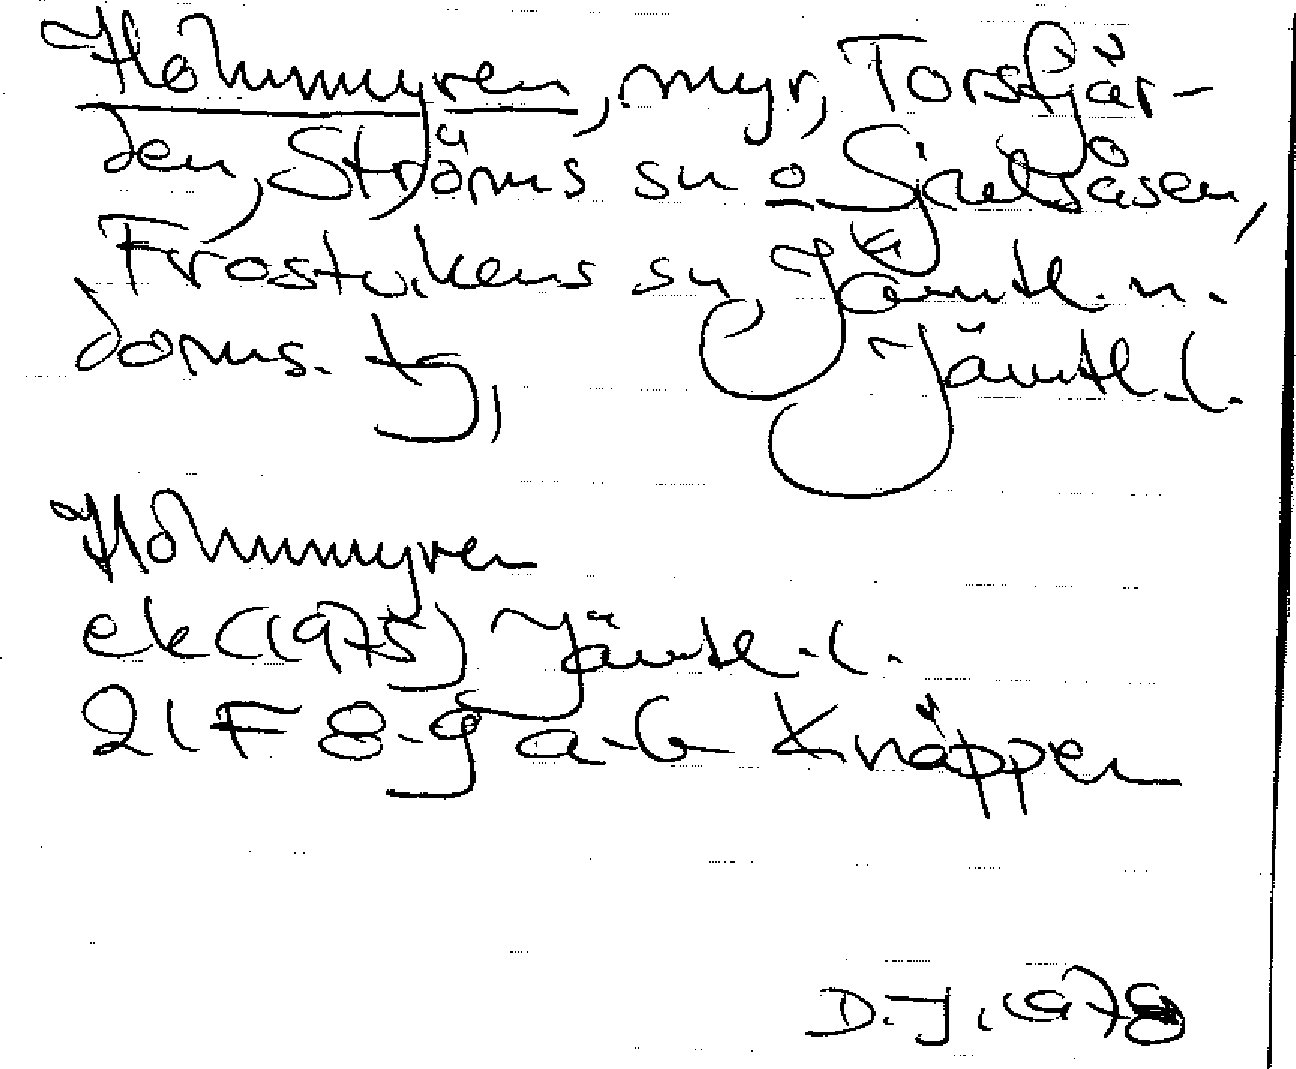 Holmmyren, myr, Torsfjär-
den, Ströms sn o Gjälsåsen,
Frostvikens sn, Jämtl. n.
doms. tg, Jämtl. l.
Holmmyren
ek (1975) Jämtl. l.
21F 8-9 a-b Knäppen
D.J. 1978